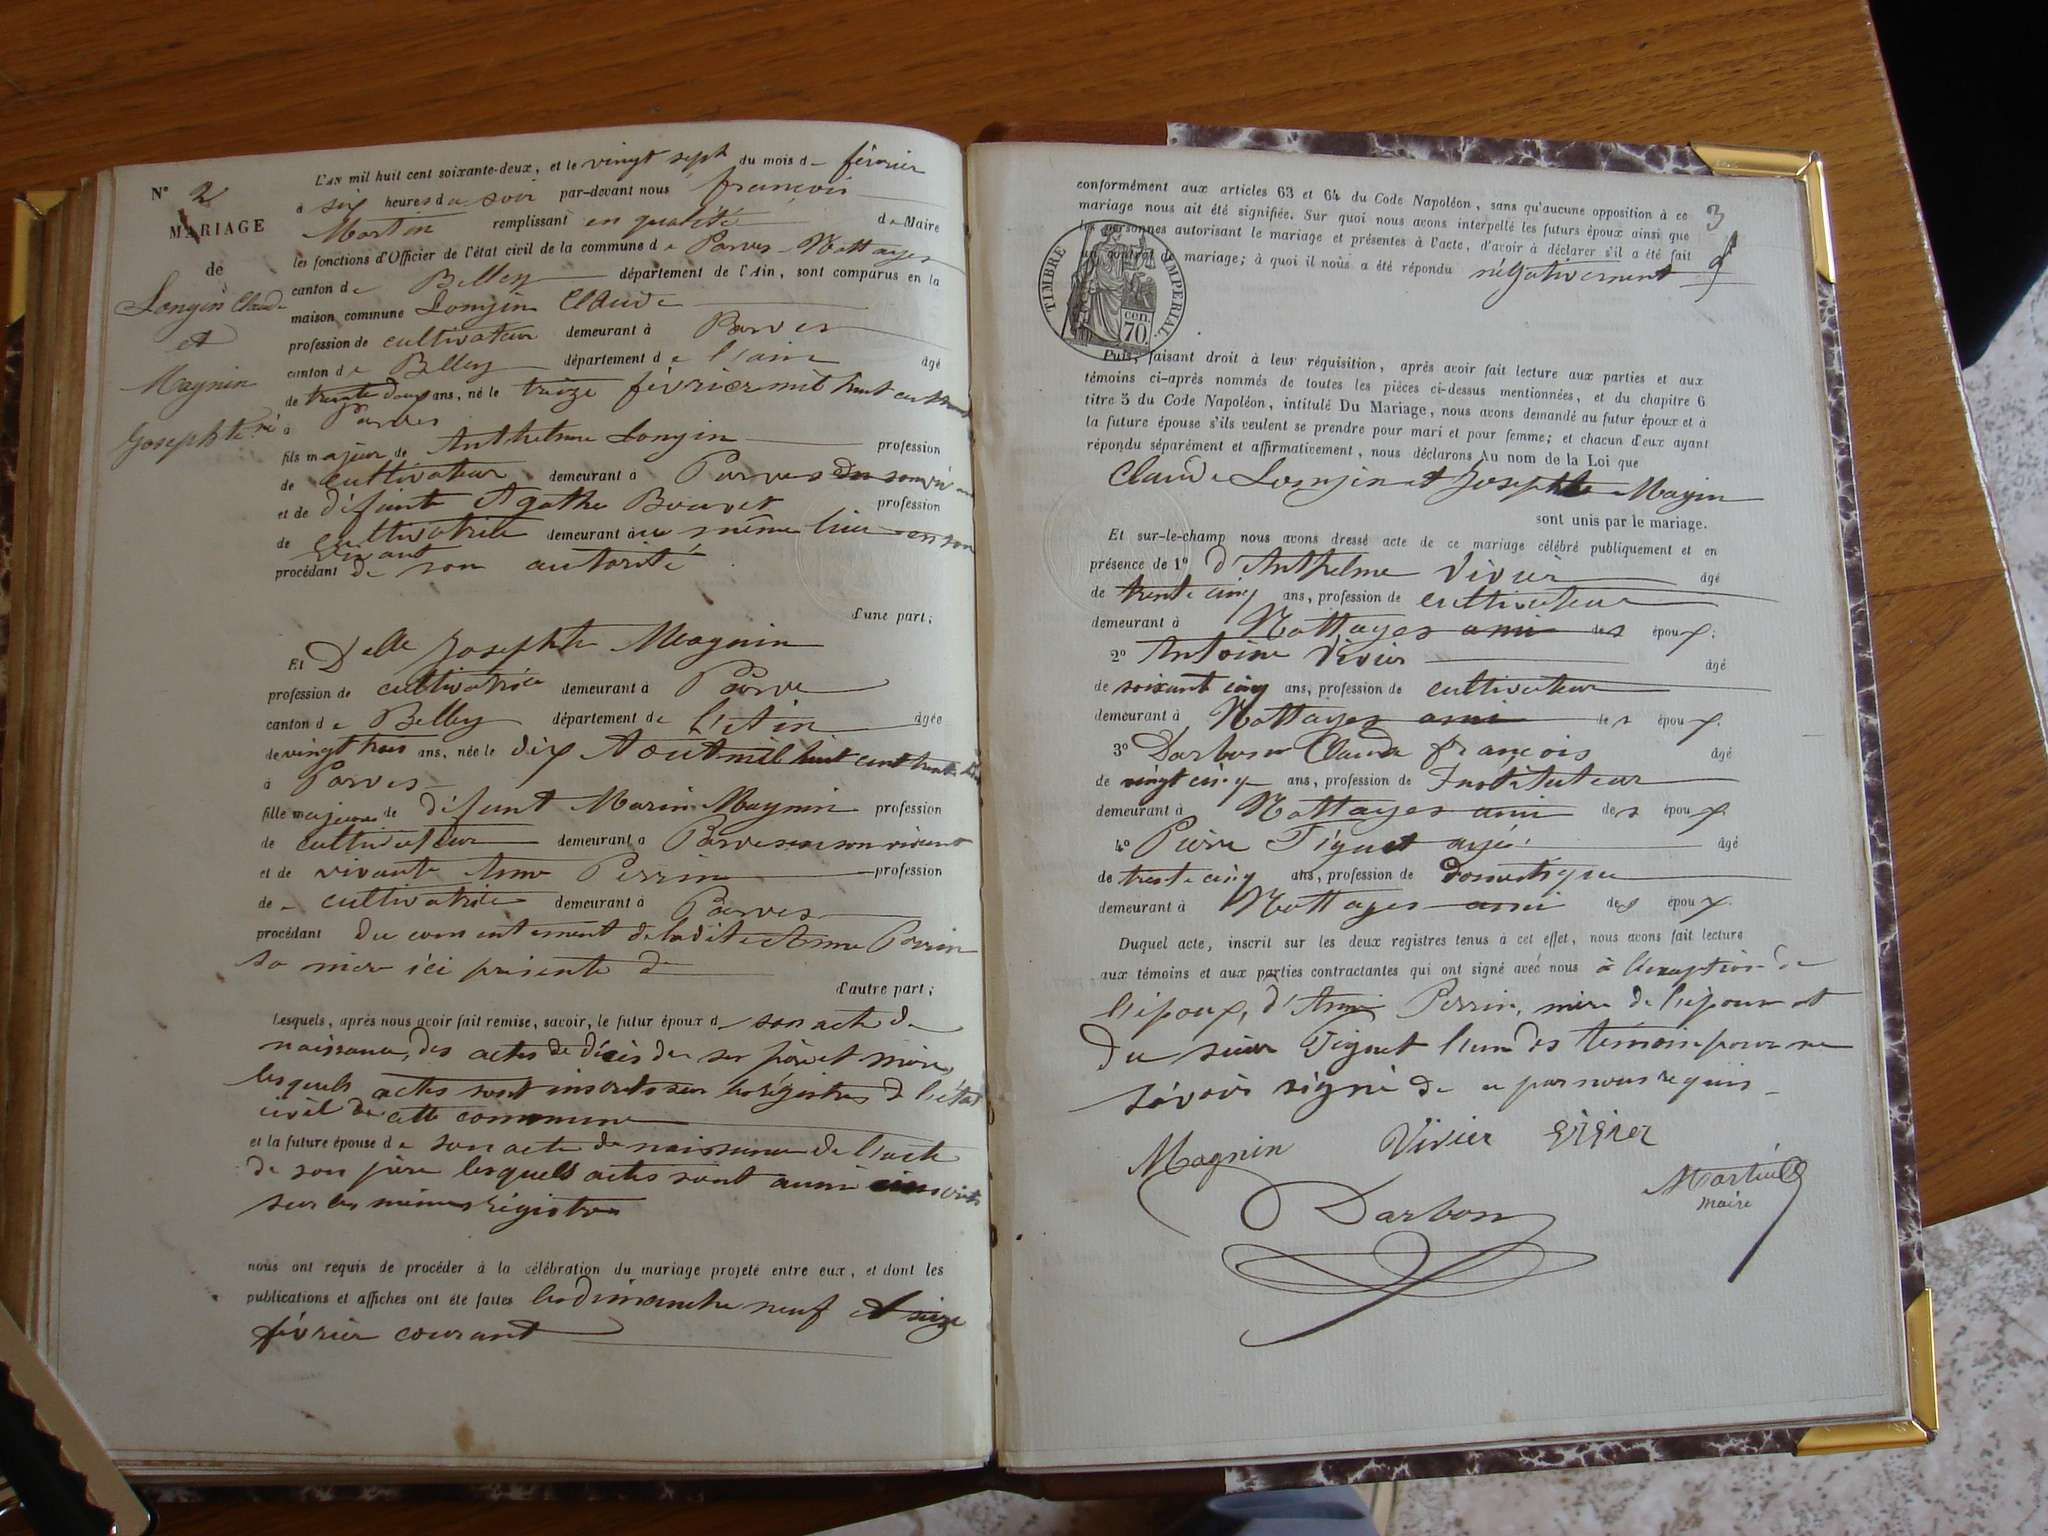 N° 2
MARIAGE
de
Longin Claude
et
Magnin
Josephte
L'AN mil huit cent soixante-deux, et le vingt sept du mois d février
à six heures du soir par-devant nous françois
Martin remplissant en qualité de Maire
les fonctions d'Officier de l'état civil de la commune de Parves-Nattages
canton de Belley département de l'Ain, sont comparus en la
maison commune Longin Claude
profession de cultivateur demeurant à Parves
canton de Belley département de l'ain âgé
de trente deux ans, né le treize février mil huit cent
à Parves
fils majeur de Anthelme Longin profession
de cultivateur demeurant à Parves
et de défunte Agathe Bouvet profession
de cultivatrice demeurant au même lieu en son
vivant
procédant de son autorité
d'une part;
Et Delle Josephte Magnin
profession de cultivatrice demeurant à Parve
canton de Belley département de l'Ain âgée
de vingt trois ans, née le dix Aout mil huit cent trente
à Parves
fille majeure de défunt Marin Magnin profession
de cultivateur demeurant à Parves en son vivant
et de vivante Anne Perrin profession
de cultivatrice demeurant à Parves
procédant du consentement de ladite Anne Perrin
sa mère ici présente
d'autre part;
Lesquels, après nous avoir fait remise, savoir, le futur époux de son acte de
naissance, des actes de décès de ses père et mère,
lesquels actes sont inscrits sur les régistres de l'état
civil de cette commune
et la future épouse de son acte de naissance de l'acte
de son père lesquels actes sont aussi inscrits
sur les mêmes régistres
nous ont requis de procéder à la célébration du mariage projeté entre eux, et dont les
publications et affiches ont été faites les dimanche neuf et seize
février courant
3
conformément aux articles 63 et 64 du Code Napoléon, sans qu'aucune opposition à ce
mariage nous ait été signifiée. Sur quoi nous avons interpellé les futurs époux ainsi que
les personnes autorisant le mariage et présentes à l'acte, d'avoir à déclarer s'il a été fait
un contrat de mariage; à quoi il nous a été répondu négativement
TIMBRE IMPERIAL.
cen.
70.
Puis, faisant droit à leur réquisition, après avoir fait lecture aux parties et aux
témoins ci-après nommés de toutes les pièces ci-dessus mentionnées, et du chapitre 6
titre 5 du Code Napoléon, intitulé Du Mariage, nous avons demandé au futur époux et à
la future épouse s'ils veulent se prendre pour mari et pour femme; et chacun d'eux ayant
répondu séparément et affirmativement, nous déclarons Au nom de la Loi que
Claude Longin et Josephte Magin
sont unis par le mariage.
Et sur-le-champ nous avons dressé acte de ce mariage célébré publiquement et en
présence de 1° d'Anthelme Vivier âgé
de trente cinq ans, profession de cultivateur
demeurant à Nattages ami des époux;
2° Antoine Vivier âgé
de soixant cinq ans, profession de cultivateur
demeurant à Nattages ami des époux.
3° Darbon Claude françois âgé
de vingt cinq ans, profession de Instituteur
demeurant à Nattages ami des époux.
4° Pierre Tiguet âgé
de trente cinq ans, profession de domestique
demeurant à Nattages ami des époux.
Duquel acte, inscrit sur les deux registres tenus à cet effet, nous avons fait lecture
aux témoins et aux parties contractantes qui ont signé avec nous à l'exception de
l'époux, d'Anne Perrin, mère de l'épouse et
du sieur Tiguet l'un des témoin pour ne
savoir signé de ce par nous requis
Magnin Vivier Vivier
Martin
maire
Darbon